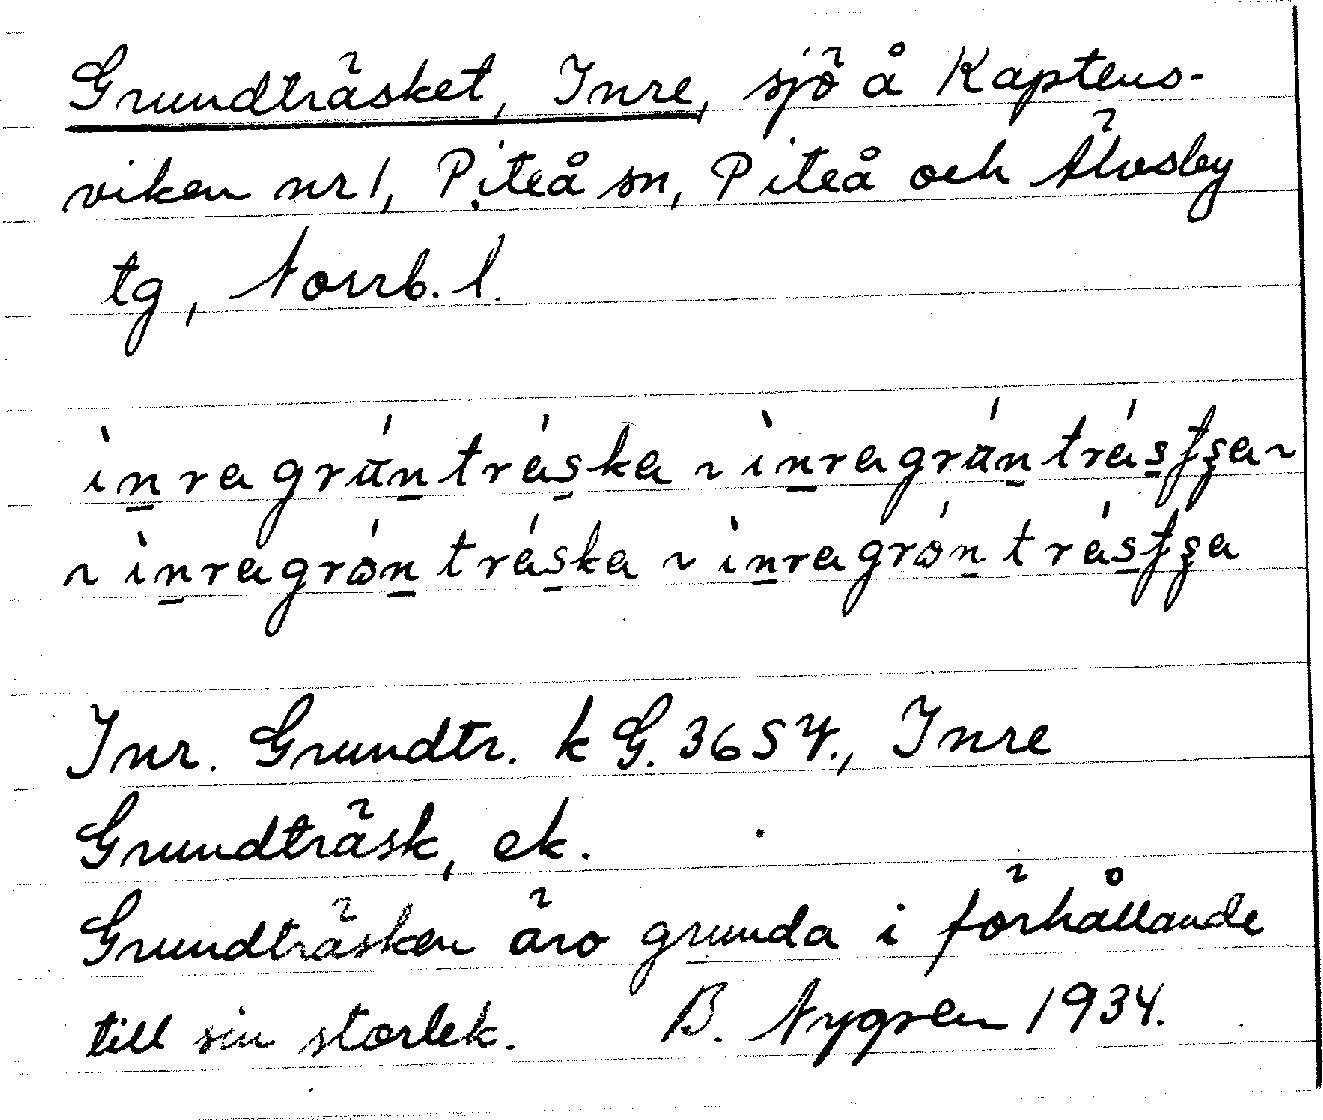 Grundträsket, Inre, sjö å Kaptens-
viken nr 1, Piteå sn, Piteå och Älvsby
tg, Norrb. l.
ìn̲ragrún̲trás̲ka ~ ìn̲ragrún̲trás̲ʃʂa ~
~ ìn̲ragrón̲trás̲ka ~ ìn̲ragrón̲trás̲ʃʂa
Inr. Grundtr. k G. 3654., Inre
Grundträsk, ek.
Grundträsken äro grunda i förhållande
till sin storlek. B. Nygren 1934.